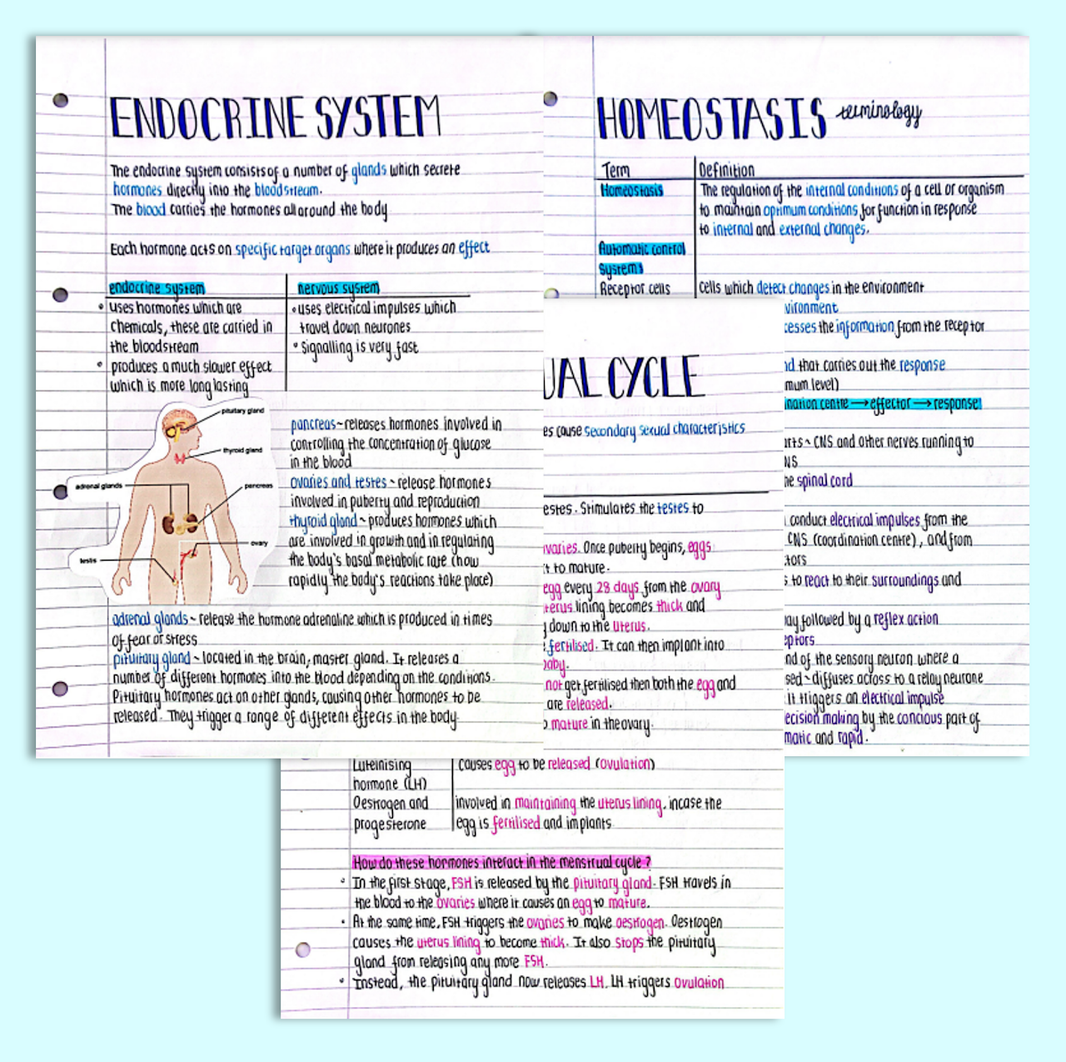 ENDOCRINE SYSTEM
The endocrine system consists of a number of glands which secrete
hormones directly into the bloodstream.
The blood carries the hormones all around the body
Each hormone acts on specific target organs where it produces an effect
endocrine system
• uses hormones which are
chemicals, these are carried in
the bloodstream
• produces a much slower effect
which is more long lasting
nervous system
• uses electrical impulses which
travel down neurones
• Signalling is very fast
pituitary gland
thyroid gland
adrenal glands
pancreas
ovary
testis
pancreas~releases hormones involved in
controlling the concentration of glucose
in the blood
ovaries and testes ~ release hormones
involved in puberty and reproduction
thyroid gland ~ produces hormones which
are involved in growth and in regulating
the body's basal metabolic rate (how
rapidly the body's reactions take place)
adrenal glands ~ release the hormone adrenaline which is produced in times
of fear or stress
pituitary gland ~ located in the brain, master gland. It releases a
number of different hormones into the blood depending on the conditions.
Pituitary hormones act on other glands, causing other hormones to be
released. They trigger a range of different effects in the body.
HOMEOSTASIS terminology
Term Definition
Homeostasis The regulation of the internal conditions of a cell or organism
to maintain optimum conditions for function in response
to internal and external changes.
Automatic control
Systems
Receptor cells cells which detect changes in the environment
vironment
cesses the information from the receptor
nd that carries out the response
mum level)
ination centre → effector → response
arts ~ CNS and other nerves running to
NS
he spinal cord
conduct electrical impulses from the
CNS (coordination centre), and from
tors
s to react to their surroundings and
ay followed by a reflex action
eptors
nd of the sensory neuron where a
sed ~ diffuses across to a relay neurone
it triggers an electrical impulse
ecision making by the concious part of
matic and rapid.
UAL CYCLE
es cause secondary sexual characteristics
estes. Stimulates the testes to
varies. Once puberty begins, eggs
t to mature.
egg every 28 days from the ovary
terus lining becomes thick and
down to the uterus.
fertilised. It can then implant into
baby.
not get fertilised then both the egg and
are released.
o mature in the ovary.
Luteinising causes egg to be released (ovulation)
hormone (LH)
Oestrogen and involved in maintaining the uterus lining, incase the
progesterone egg is fertilised and implants
How do these hormones interact in the menstrual cycle?
• In the first stage, FSH is released by the pituitary gland. FSH travels in
the blood to the ovaries where it causes an egg to mature.
• At the same time, FSH triggers the ovaries to make oestrogen. Oestrogen
causes the uterus lining to become thick. It also stops the pituitary
gland from releasing any more FSH.
• Instead, the pituitary gland now releases LH. LH triggers ovulation